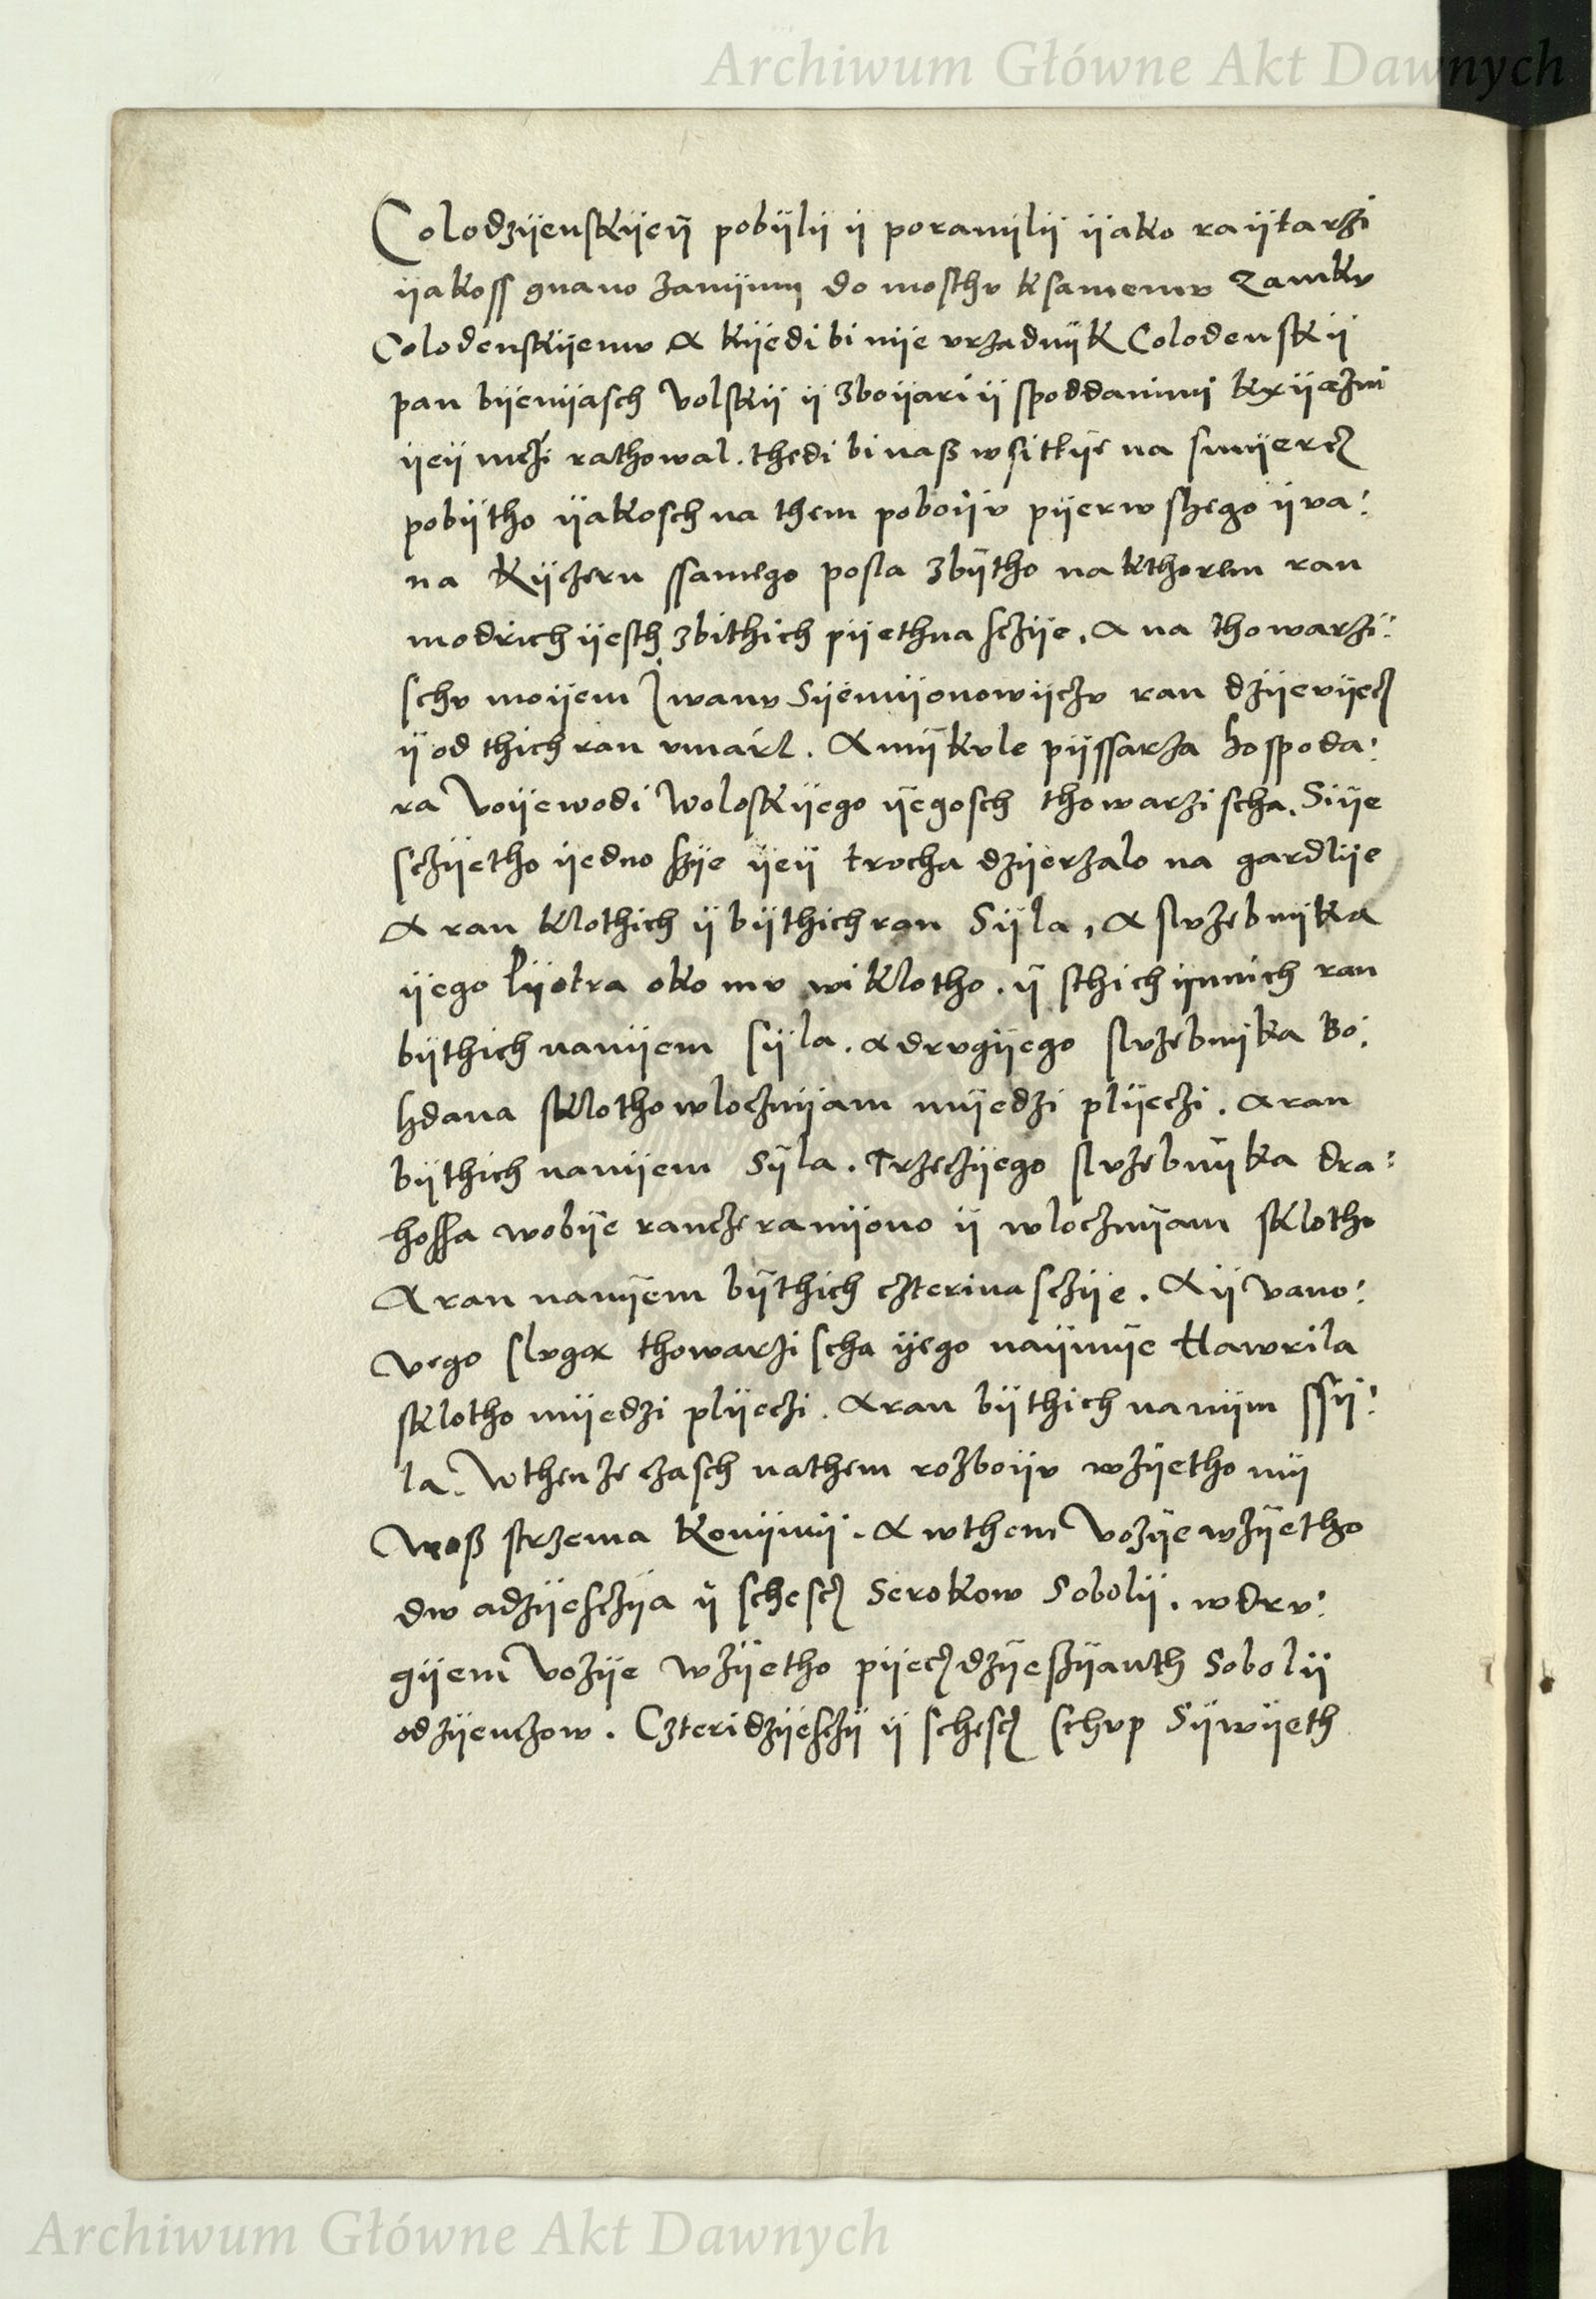 Archiwum Główne Akt Dawnych
Colodzÿenskÿeÿ pobÿlÿ ÿ poranÿlÿ ÿako raÿtarzi
ÿakoss gnano zanÿmÿ do mosthv ksamemv Zamkv
Colodenskÿemv A kÿedi bi nÿe vrzadnÿk Colodenskÿ
pan bÿenÿasch Volskÿ ÿ zboÿari ÿ spoddanimÿ kxÿæzni
ÿeÿ mczi rathowal. thedi bi naß wsitkÿe na smÿercz
pobÿtho ÿakosch na them poboÿv pÿerwshego ÿva:
na Kÿczeru ssamego posla zbÿtho na kthorem ran
modrich ÿesth zbithich pÿethnasczÿe. A na thowarzi:
schv moÿem Iwanv Sÿemÿonowÿczv ran dzÿevÿecz
ÿ od thich ran vmarl. A mÿkvle pÿssarza hospoda:
ra Voÿewodi Woloskÿego ÿegosch thowarzischa. Siÿe
sczÿetho ÿedno szÿe ÿeÿ trocha dzÿerzalo na gardlÿe
A ran klothich ÿ bÿthich ran Sÿla, A slvzebnÿka
ÿego Pÿotra oko mv wiklotho. ÿ sthich ÿnnich ran
bÿthich nanÿem sÿla. A drvgÿego slvzebnÿka Bo:
hdana sklotho wlocznÿam mÿedzi plÿeczi. A ran
bÿthich nanÿem Sÿla. Trzeczÿego slvzebnÿka dra:
hossa wobÿe rancze ranÿono ÿ wlocznÿam sklotho
A ran nanÿem bÿthich czterinasczÿe. A ÿvano:
vego slvgæ thowarzischa ÿego naÿmÿe Hawrila
sklotho mÿedzi plÿeczi. A ran bÿthich nanÿm ssÿ:
la. Wthenze czasch nathem rozboÿv wzÿetho mÿ
Woß strzema Konÿmÿ. A wthem Vozÿe wzÿetho
dwadzÿesczÿa ÿ schescz Serokow Sobolÿ. wdrv:
gÿem Vozÿe wzÿetho pÿeczdzÿeszÿanth Sobolÿ
odzÿenczow. Czteridzÿesczÿ ÿ schescz schvp Sÿwÿeth
Archiwum Główne Akt Dawnych